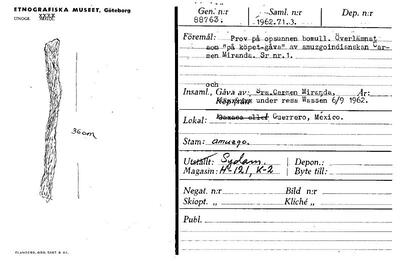 ETNOGRAFISKA MUSEET, Göteborg
36cm
Gen. n:r
88763.
Saml. n:r
1962.71.3.
Dep. n:r
Föremål: Prov på opsunnen bomull. Överlämnat
som "på köpet-gåva" av amuzgoindianskan Car-
men Miranda. Sr nr.1.
och
Insaml., Gåva av: Sra. Carmen Miranda. År:
under resa Wassen 6/9 1962.
Lokal: Oaxaca eller Guerrero, México.
Stam: amuzgo.
Utställt: Sydam. Depon.:
Magasin: H-121, K-2 Byte till:
Negat. n:r Bild n:r
Skiopt. „ Kliché „
Publ.